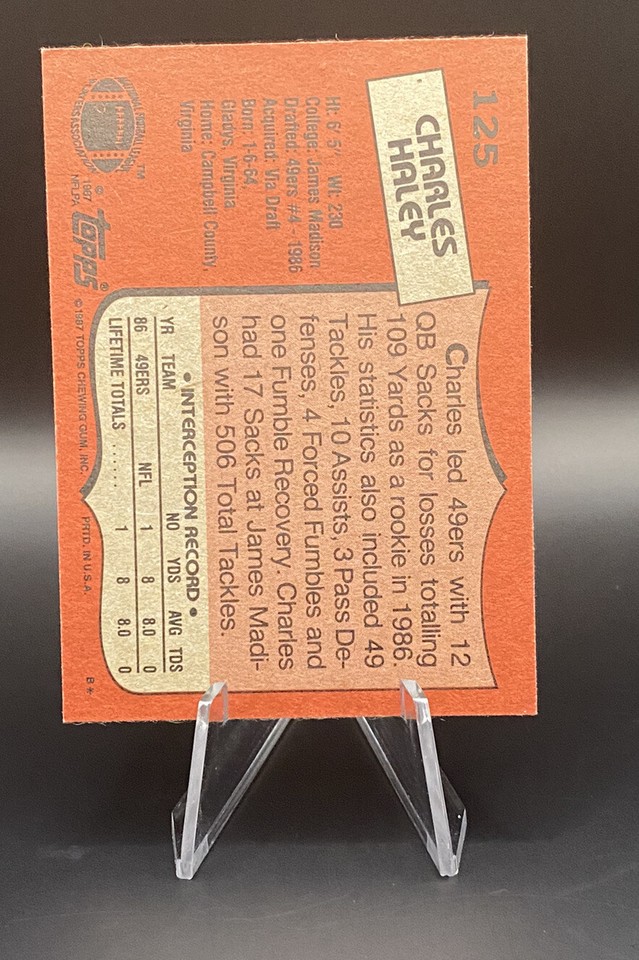 125
CHARLES
HALEY
Ht: 6' 5" Wt: 230
College: James Madison
Drafted: 49ers #4 - 1986
Acquired: Via Draft
Born: 1-6-64,
Gladys, Virginia
Home: Campbell County,
Virginia
™
© 1987
NFLPA
topps®
© 1987 TOPPS CHEWING GUM, INC. PRTD. IN U.S.A. B*
Charles led 49ers with 12
QB Sacks for losses totalling
109 Yards as a rookie in 1986.
His statistics also included 49
Tackles, 10 Assists, 3 Pass De-
fenses, 4 Forced Fumbles and
one Fumble Recovery. Charles
had 17 Sacks at James Madi-
son with 506 Total Tackles.
• INTERCEPTION RECORD •
YR TEAM NO YDS AVG TDS
86 49ERS NFL 1 8 8.0 0
LIFETIME TOTALS ...... 1 8 8.0 0